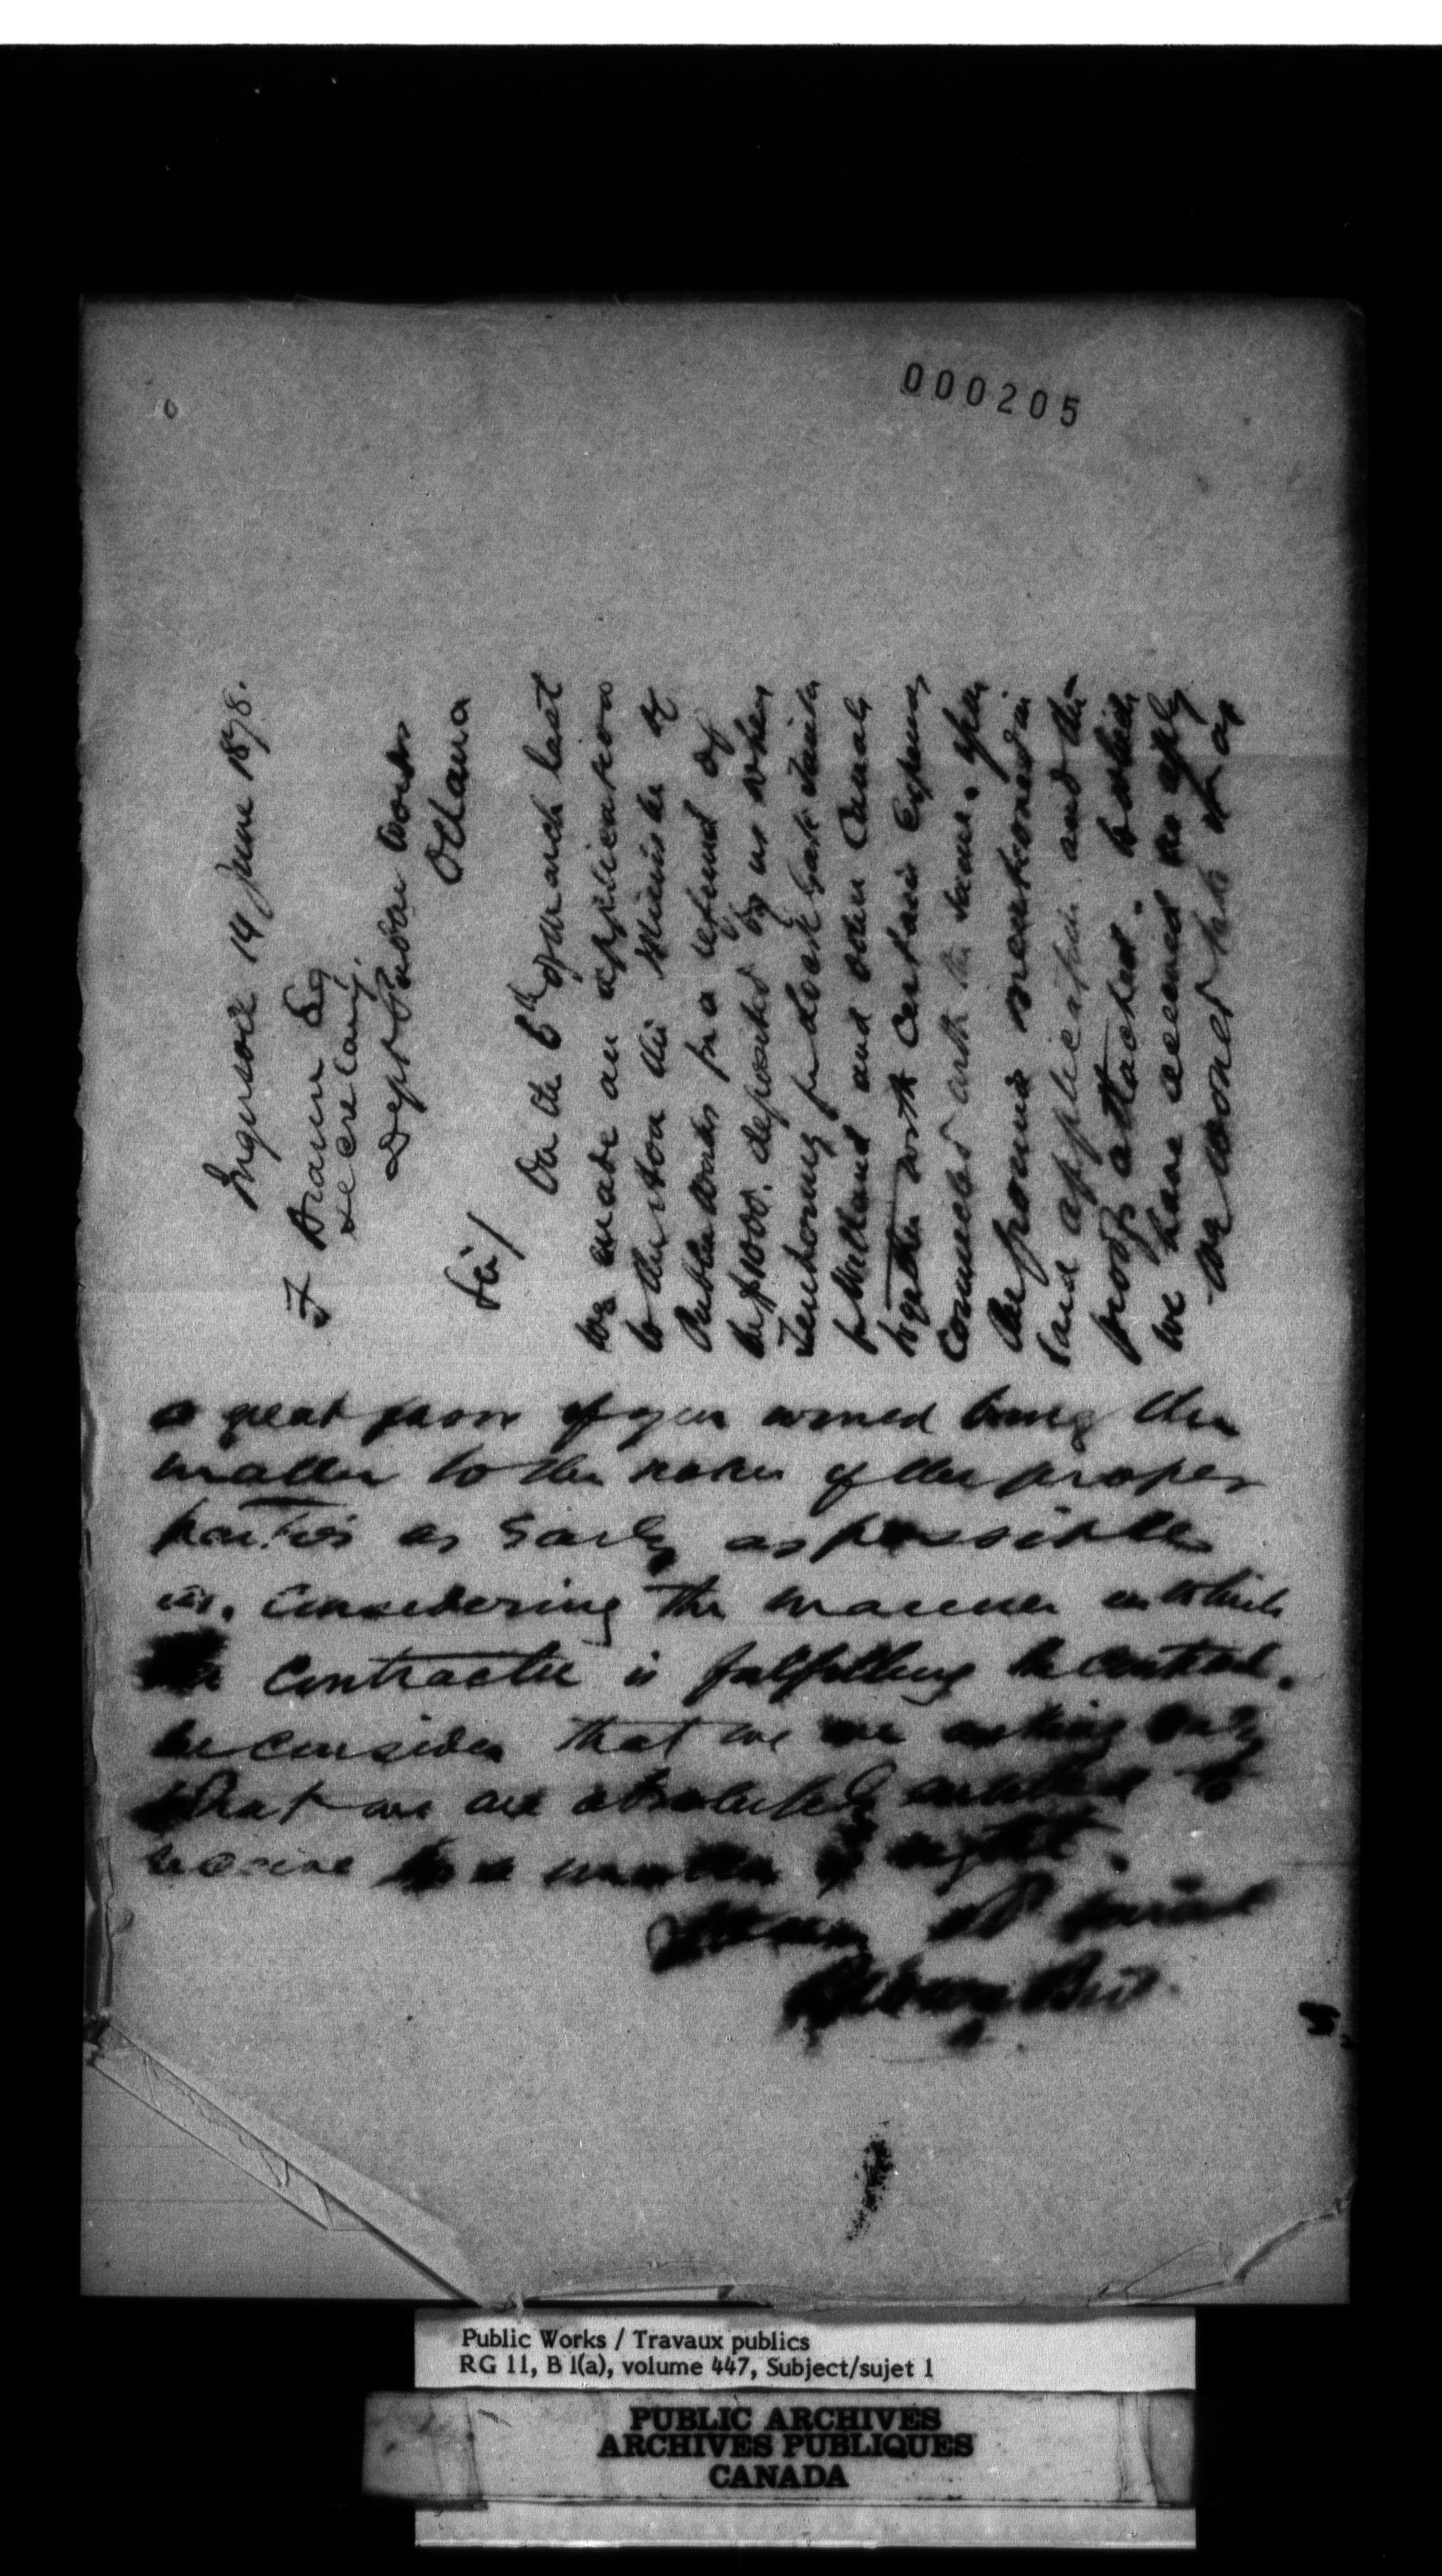 000205
Ingersoll 14 June 1878.
F Braun Esq
Secretary.
Dept Public Works
Ottawa
Sir/
On the 6th of March last
we made an application
to the Minister of
Public Works for a refund of
$1000. deposited by us when
Tendering for Lock Gate
for Welland and other Canals
together with certain Expenses
Connected with the same.
mentioned in
said application and the
proofs attached. to which
we have received no reply
We would take it as
a great favor if you would bring this
matter to the notice of the proper
parties as Early as possible
as. Considering the manner in which
the Contractor is fulfilling he contract.
we consider that we are asking only
what we are absolutely entitled to
receive as a matter of right.
Yours
Bros.
Public Works / Travaux publics
RG 11, B 1(a), volume 447, Subject/sujet 1
PUBLIC ARCHIVES
ARCHIVES PUBLIQUES
CANADA